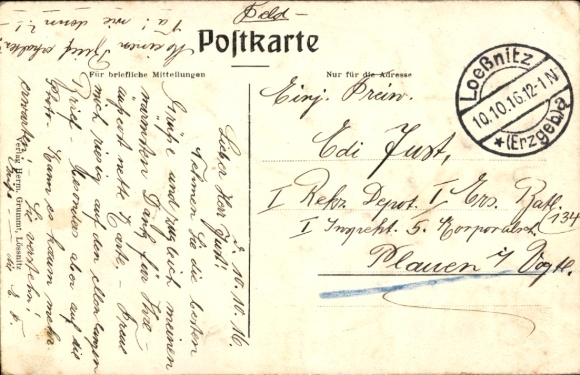 Feld-
Postkarte
Für briefliche Mitteilungen
Nur für die Adresse
Loeßnitz
10.10.16.12-1 N
(Erzgeb)
Einj. Freiw.
Edi Just,
I Rekr. Depot. I/ Ers. Batl.
134
I Inspekt. 5. Korporalsch.
Plauen i/ Vogtl.
d. 10.10.16
Lieber Herr Just!
Nehmen Sie die besten
Grüße und zugleich meinen
wärmsten Dank für Ihre
äußerst nette Karte. - Freue
mich riesig auf den
Brief. Besonders aber auf die
Kann es kaum mehr
erwarten! - Sie verstehn!
Meinen Brief erhalten?
Na! wie denn?!
Verlag Herm. Grummt, Lössnitz